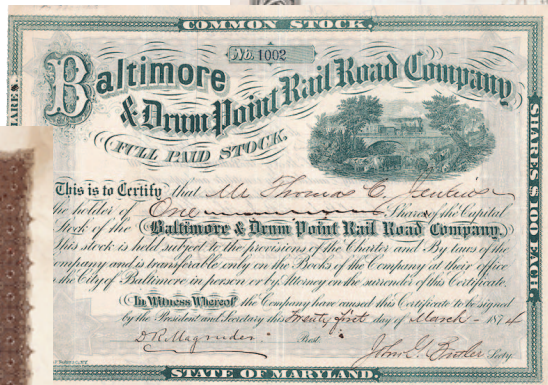 COMMON STOCK.
No. 1002
Baltimore
& Drum Point Rail Road Company
FULL PAID STOCK.
SHARES $100 EACH.
This is to Certify that Mr Thomas C. Jenkins
the holder of One Shares of the Capital
Stock of the Baltimore & Drum Point Rail Road Company.
This stock is held subject to the provisions of the Charter and By Laws of the
company and is transferable only on the Books of the Company at their office
the City of Baltimore in person or by Attorney on the surrender of this Certificate.
In Witness Whereof the Company have caused this Certificate to be signed
by the President and Secretary this Twenty first day of March 1874
D R Magruder Prest. John G. Butler Secty.
STATE OF MARYLAND.